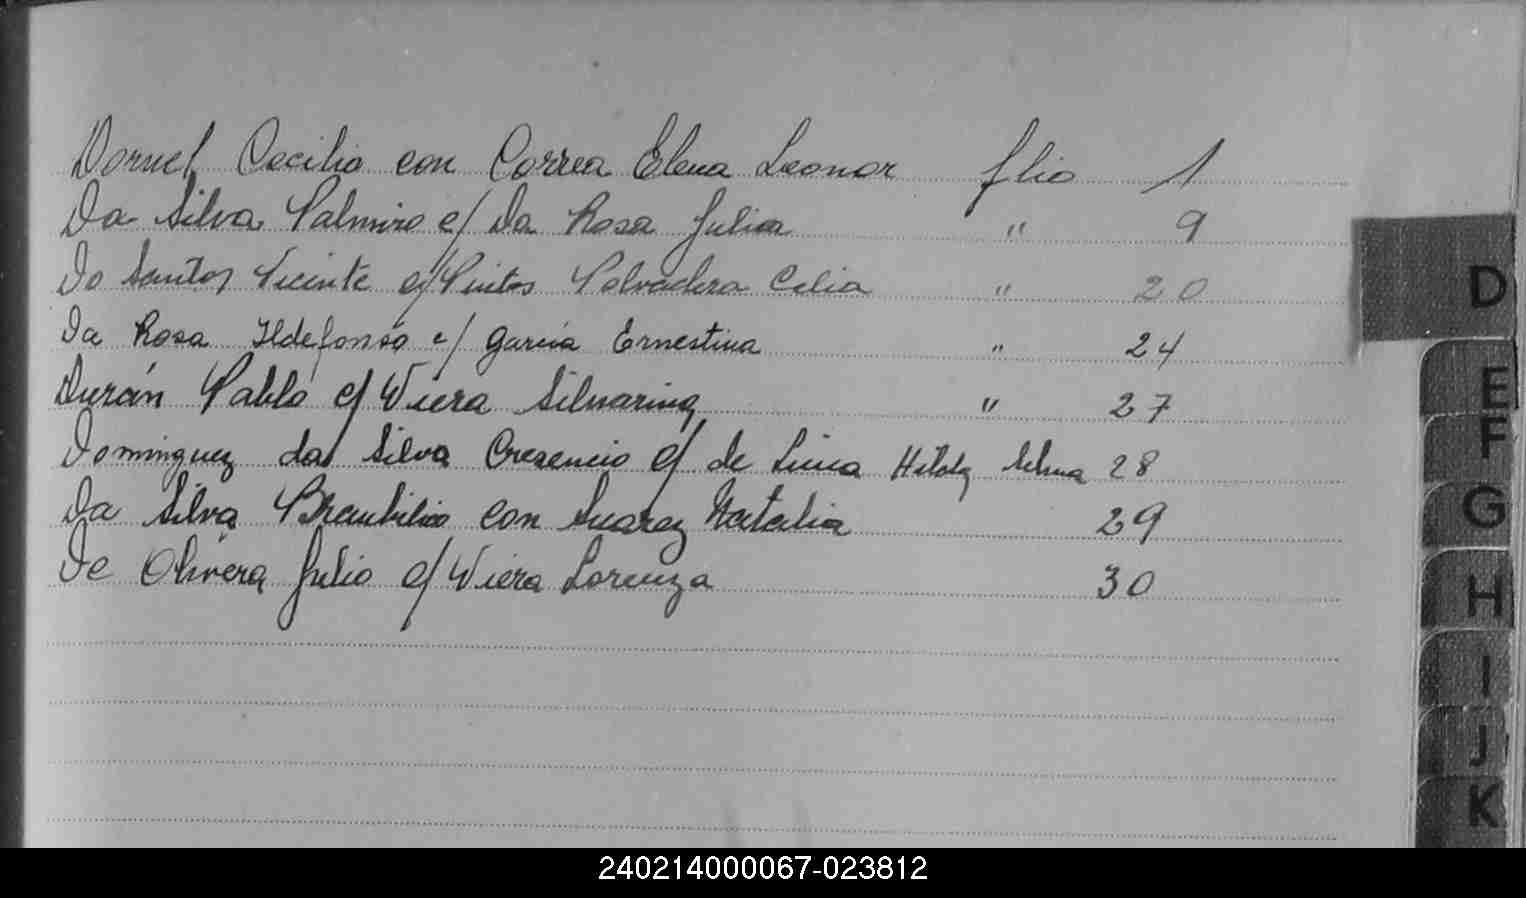 Dornel Cecilio con Correa Elena Leonor flio 1
Da Silva Palmiro c/ Da Rosa Julia " 9
Do Santos Vicente c/ Pintos Salvadora Celia " 20
Da Rosa Ildefonso c/ Garcia Ernestina " 24
Durán Pablo c/ Viera Silvarina " 27
Dominguez da Silva Cresencio c/ de Lima Hilda Selma 28
Da Silva Braubilio con Suarez Natalia 29
De Olivera Julio c/ Viera Lorenza 30
D
E
F
G
H
I
J
K
240214000067-023812